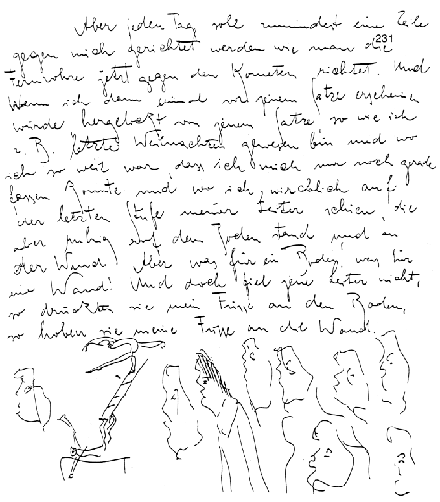 Aber jeden Tag soll zumindest eine Zeile
gegen mich gerichtet werden wie man die 231
Fernrohre jetzt gegen den Kometen richtet. Und
wenn ich dann einmal vor jenem Satze erscheinen
würde hergelockt von jenem Satze, so wie ich
z. B. letzte Weihnachten gewesen bin und wo
ich so weit war, dass ich mich nur noch gerade
fassen konnte und wo ich wirklich auf
der letzten Stufe meiner Leiter schien, die
aber ruhig auf dem Boden stand und an
der Wand. Aber was für ein Boden, was für
eine Wand! Und doch fiel jene Leiter nicht,
so drückten sie meine Füsse an den Boden,
so hoben sie meine Füsse an die Wand.